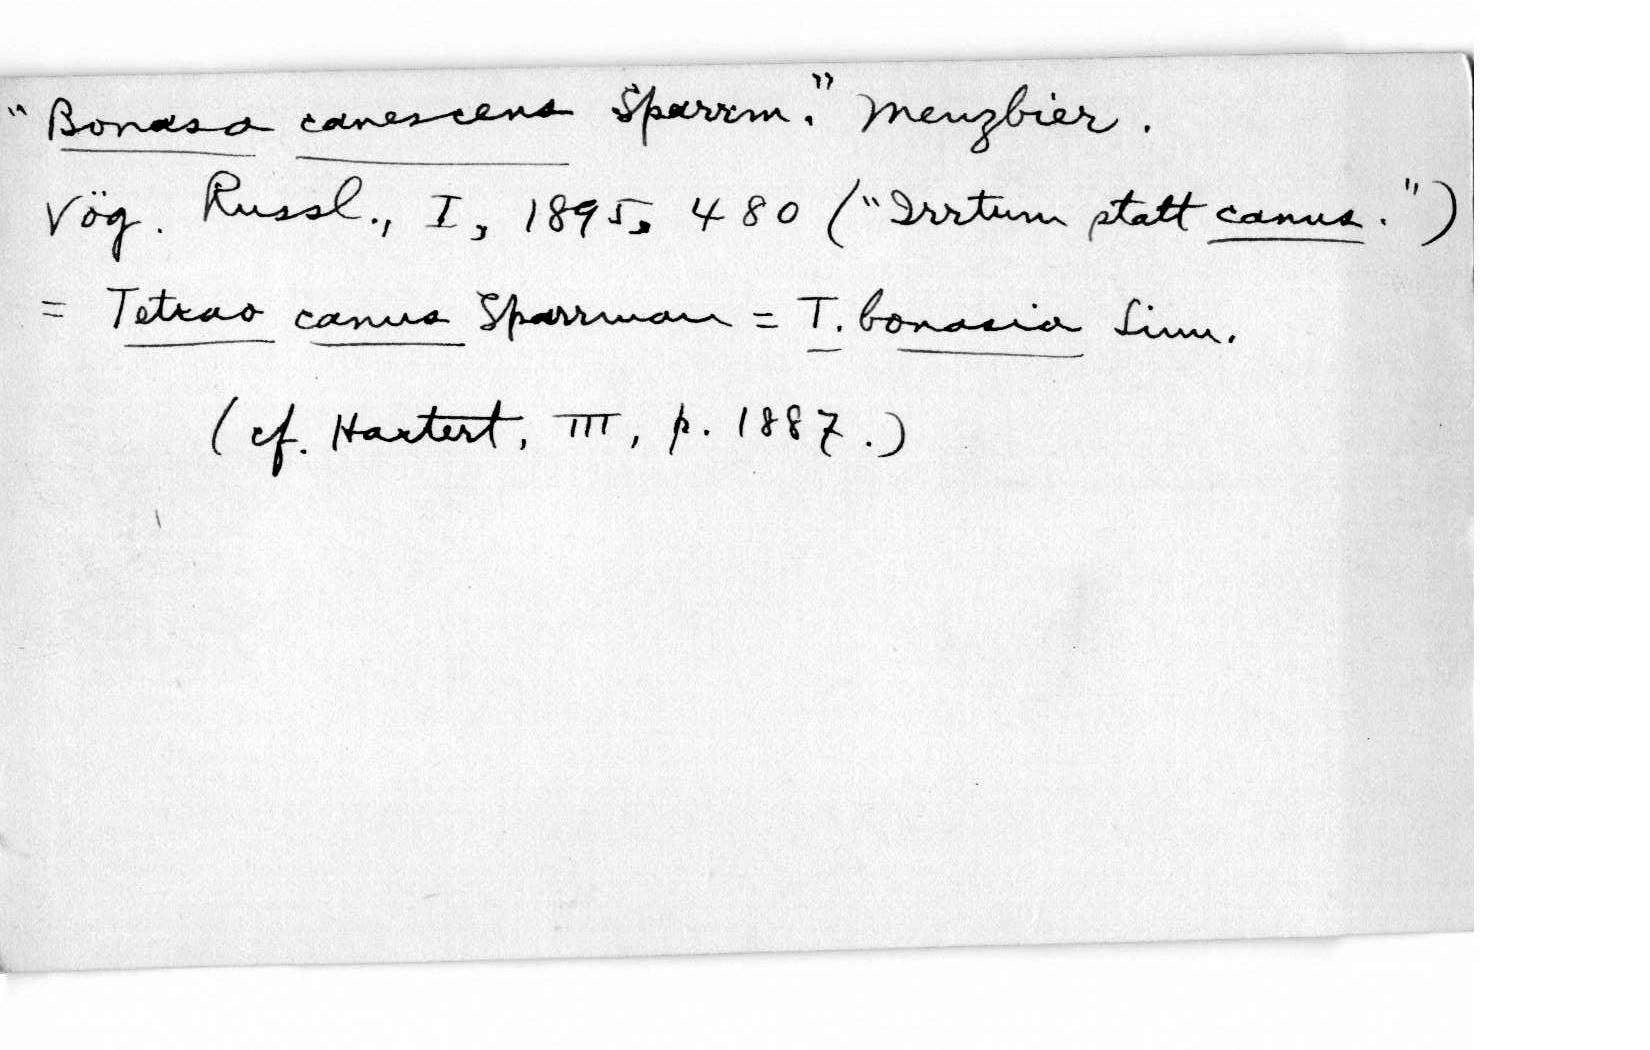 "Bonasa canescens Sparrm." Menzbier.
Vög. Russl., I, 1895, 480 ("Irrtum statt canus.")
= Tetrao canus Sparrman = T. bonasia Linn.
(cf. Hartert, III, p. 1887.)